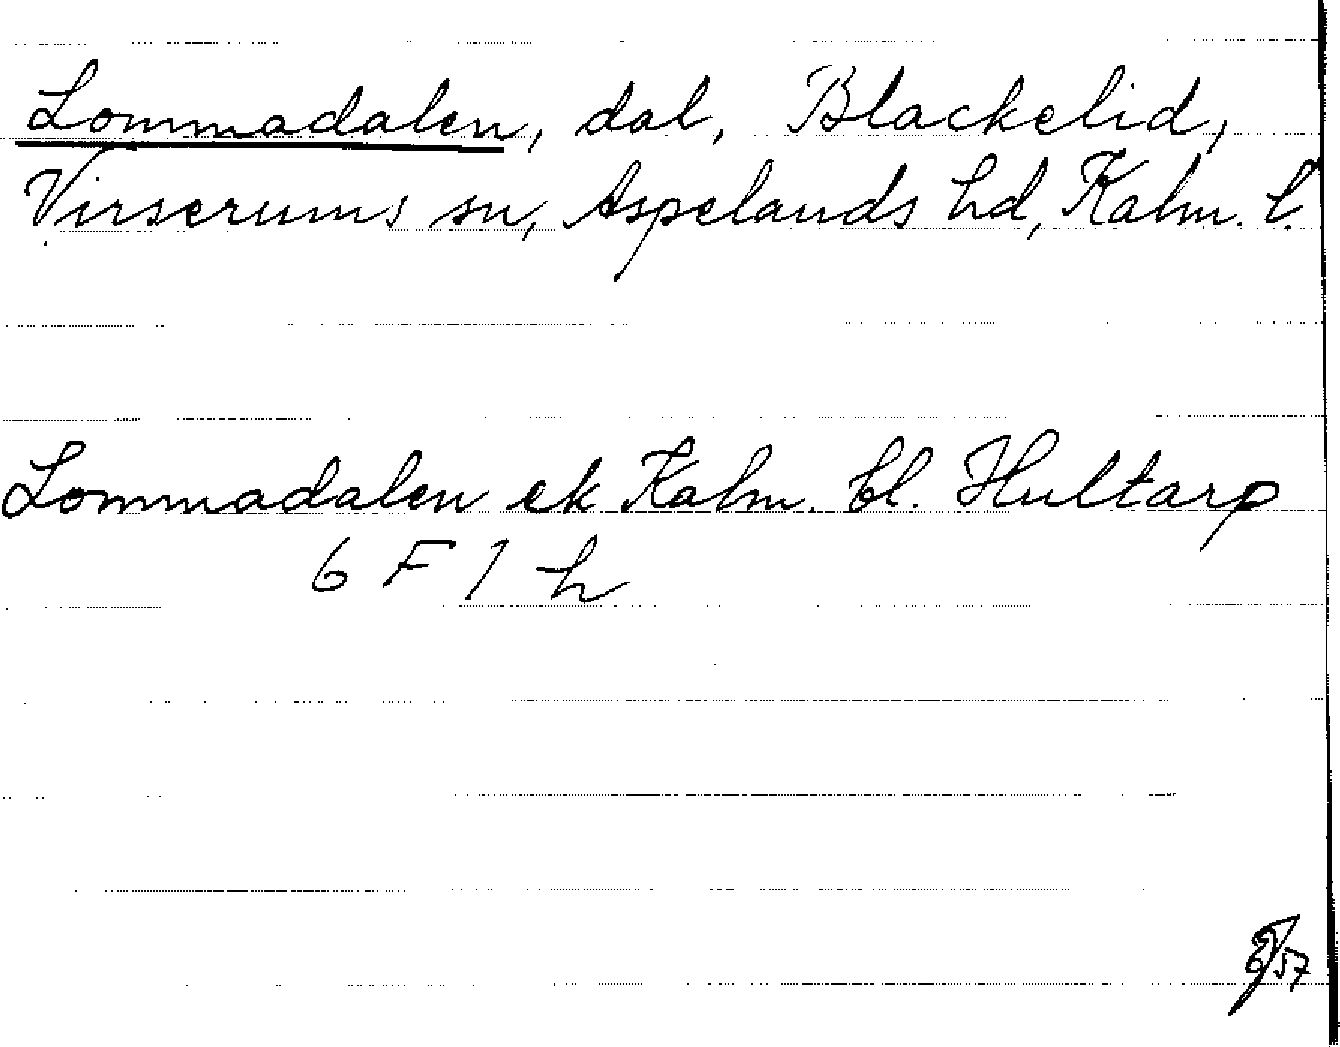 Lommadalen, dal, Blackelid,
Virserums sn, Aspelands hd, Kalm. l.
Lommadalen ek Kalm. bl. Hultarp
6 F 1 h
57